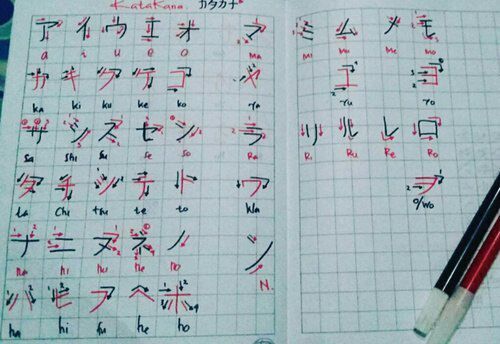 KataKana カタカナ
ア イ ウ エ オ マ
a i u e o Ma
カ キ ク ケ コ ヤ
ka ki ku ke ko Ya
サ シ ス セ ソ ラ
Sa Shi Su Se So Ra
タ チ ツ テ ト ワ
ta Chi tsu te to Wa
ナ ニ ヌ ネ ノ ン
Na ni nu Ne no N.
ハ ヒ フ ヘ ホ
ha hi fu he ho
ミ ム メ モ
Mi Mu Me Mo
ユ ヨ
Yu Yo
リ ル レ ロ
Ri Ru Re Ro
ヲ
o/wo